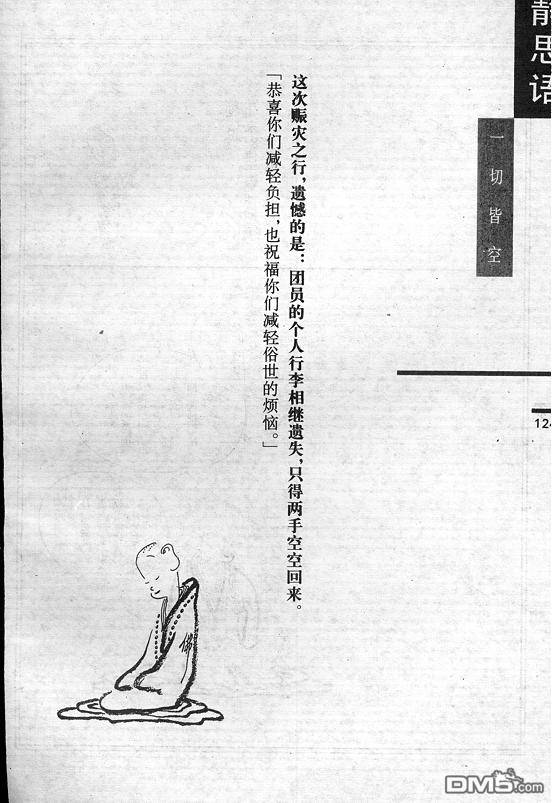 静思语
一切皆空
124
这次赈灾之行，遗憾的是：团员的个人行李相继遗失，只得两手空空回来。
「恭喜你们减轻负担，也祝福你们减轻俗世的烦恼。」
佛
DM5.com